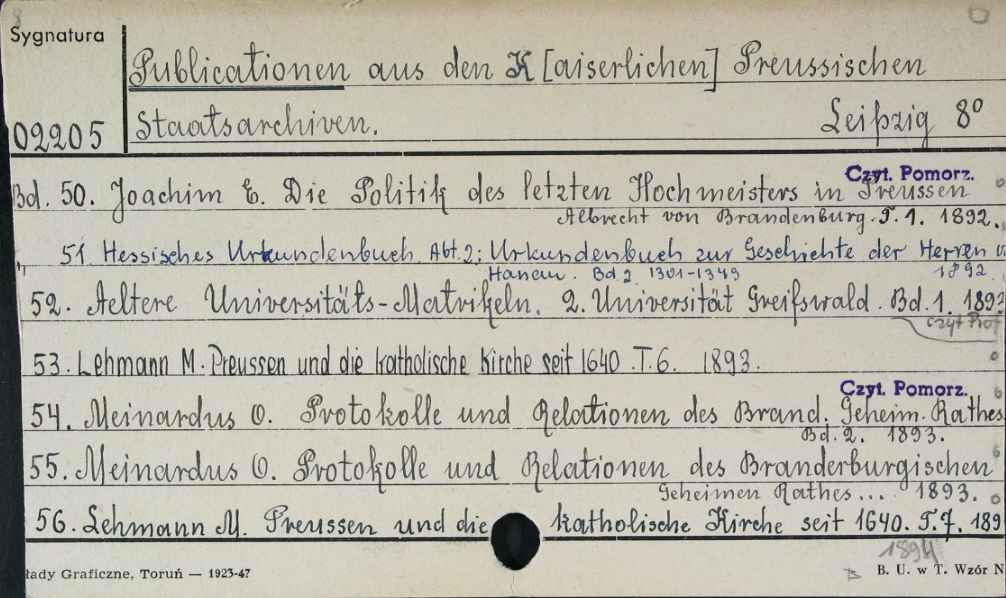 Sygnatura
Publicationen aus den K[aiserlichen] Preussischen
02205 Staatsarchiven. Leipzig 8°
Czyt. Pomorz.
Bd. 50. Joachim E. Die Politik des letzten Hochmeisters in Preussen
Albrecht von Brandenburg. T. 1. 1892.
51. Hessisches Urkundenbuch. Abt. 2: Urkundenbuch zur Geschichte der Herren
Hanau. Bd 2 1301-1349 1892
52. Aeltere Universitäts-Matrikeln. 2. Universität Greifswald. Bd. 1. 189
czyt Prof
53. Lehmann M. Preussen und die katholische Kirche seit 1640. T. 6. 1893.
Czyt. Pomorz.
54. Meinardus O. Protokolle und Relationen des Brand. Geheim. Rathes
Bd. 2. 1893.
55. Meinardus O. Protokolle und Relationen des Branderburgischen
Geheimen Rathes... 1893.
56. Lehmann M. Preussen und die katholische Kirche seit 1640. T. 7. 189
1894
łady Graficzne, Toruń — 1923-47 B. U. w T. Wzór N